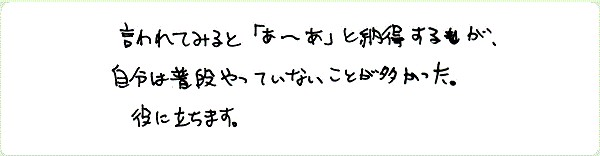 言われてみると「あ〜あ」と納得するもが、
自分は普段やっていないことが多かった。
役に立ちます。